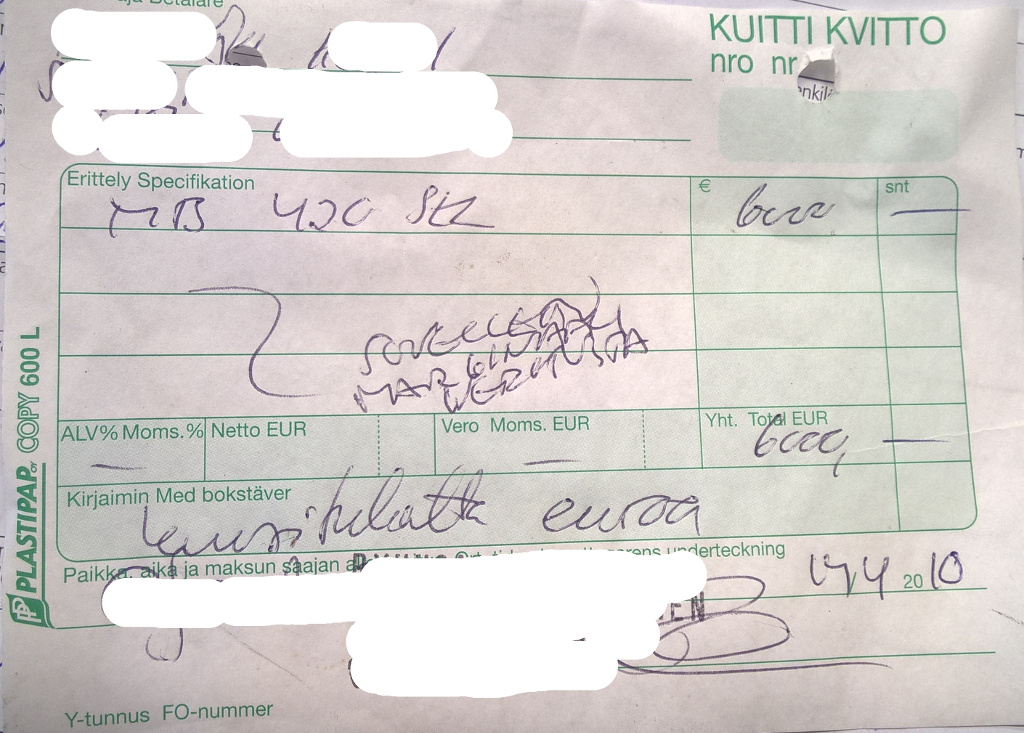 aja Betalare
KUITTI KVITTO
nro nr
nkil
Erittely Specifikation
€
snt
MB 420 SEL
6000
—
SOVELLETAAN
MARGINAALI
VEROTUSTA
ALV% Moms.%
Netto EUR
Vero Moms. EUR
Yht. Total EUR
—
—
6000,
—
Kirjaimin Med bokstäver
kuusituhatta euroa
Paikka, aika ja maksun saajan
underteckning
EN
20 10
Y-tunnus FO-nummer
PLASTIPAP OY COPY 600 L